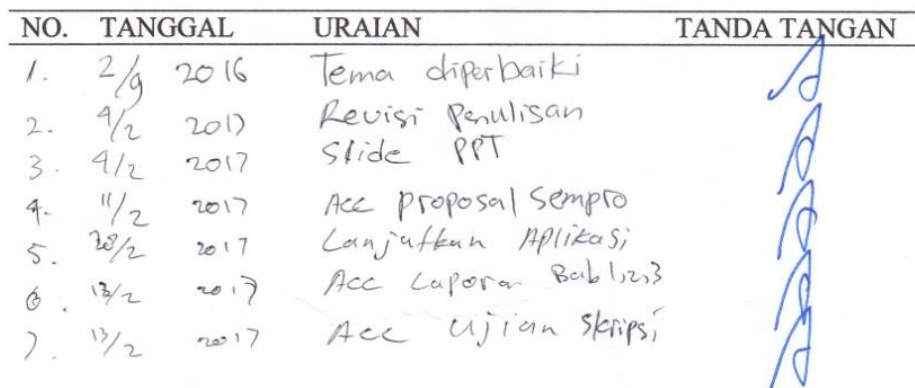 NO. TANGGAL URAIAN TANDA TANGAN
1. 2/9 2016 Tema diperbaiki
2. 4/2 2017 Revisi Penulisan
3. 4/2 2017 Slide PPT
4. 11/2 2017 Acc proposal Sempro
5. 2017 Lanjutkan Aplikasi
6. 13/2 2017 Acc Laporan Bab 1,2,3
7. 13/2 2017 Acc Ujian Skripsi